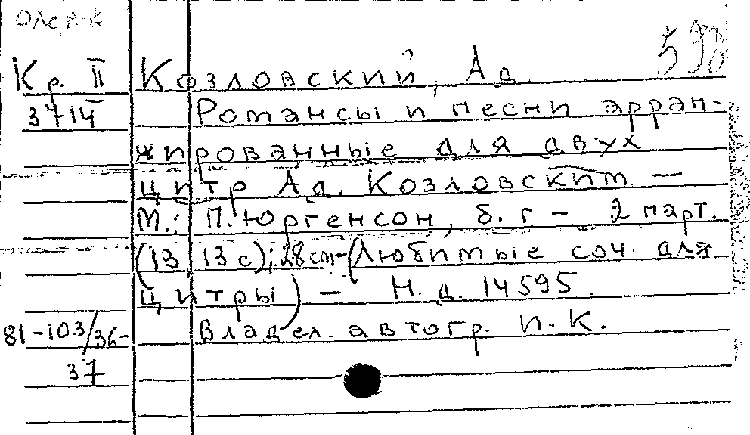 598
Кр. II Козловский, Ад.
3714 Романсы и песни арран-
жированные для двух
цитр Ад. Козловским —
М.: П. Юргенсон, б. г – 2 парт.
(13, 13 с); 28 см – (Любимые соч. для
цитры) – Н. д. 14595.
81-103/36- Владел. автогр. И. К.
37